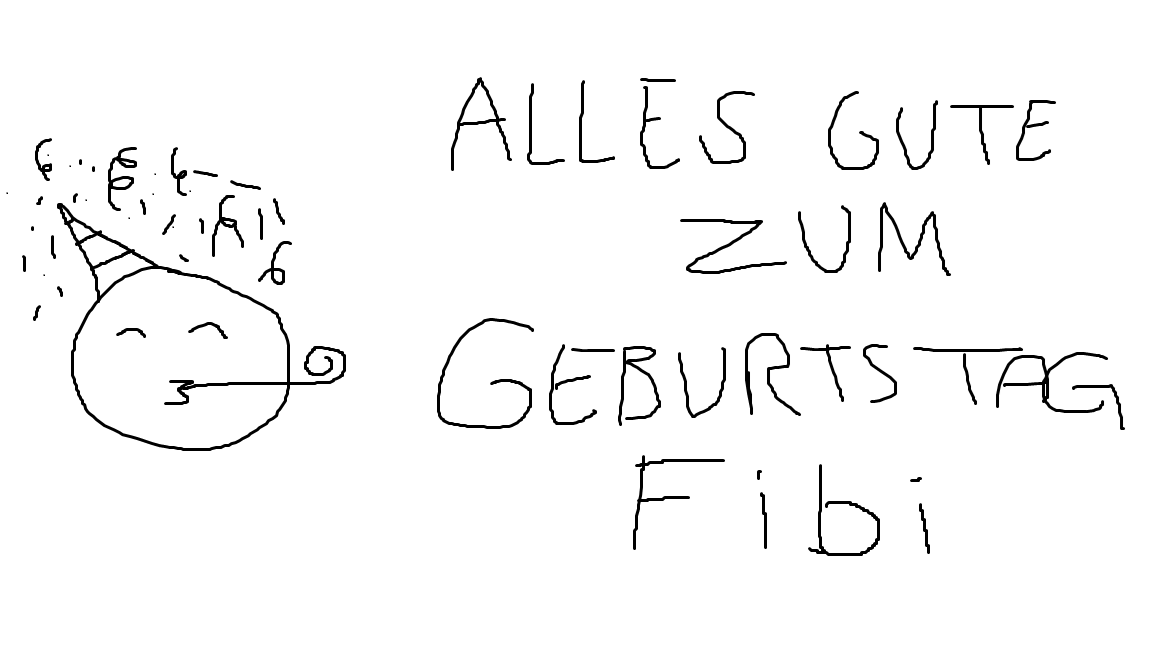 ALLES GUTE
ZUM
GEBURTSTAG
Fibi